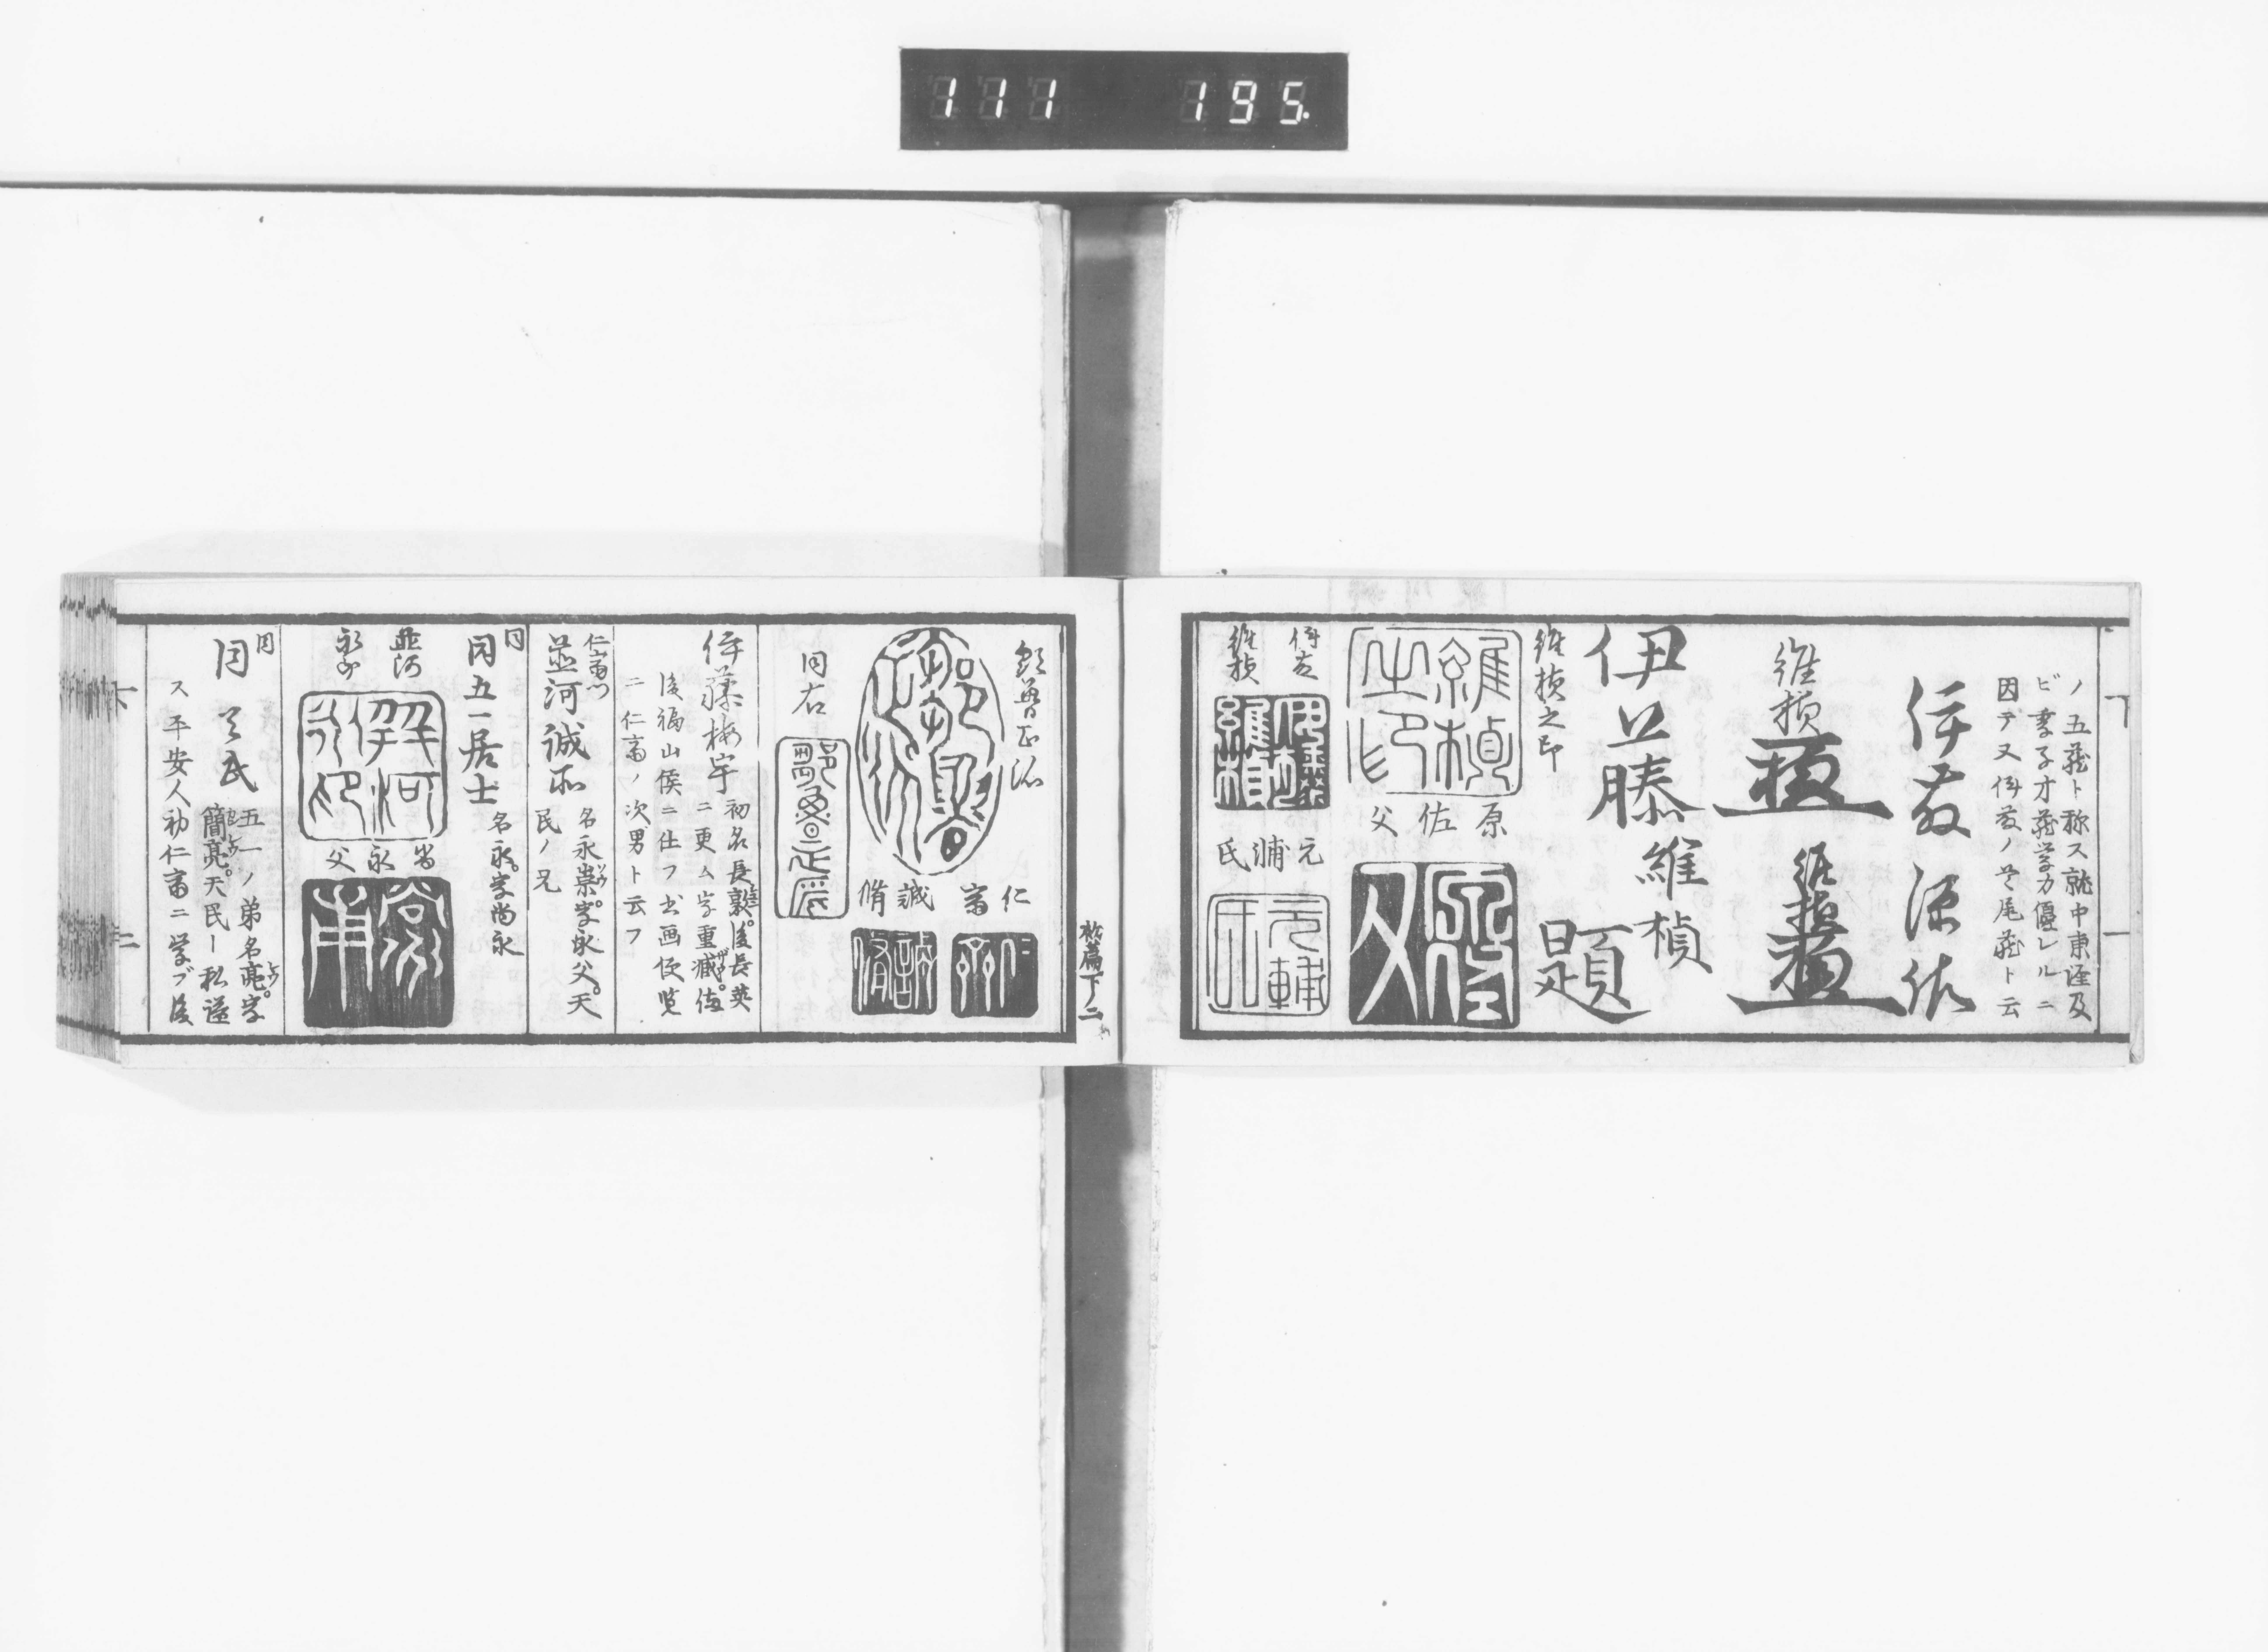 111 195.
ノ五蔵ト称ス就中東涯及
ビ季子才蔵学力優レルニ
因テ又伊藤ノ首尾蔵ト云
伊藤源佐
維楨
維楨
伊藤維楨
題
維楨之印
維楨之印
原佐父
伊藤
維楨
伊藤維楨
元浦氏
元輔
鄒魯正派
仁斎
仁斎
誠脩
誠脩
同右
鄒魯正派
伊藤梅宇
初名長敦。後長英
ニ更ム字重蔵。備
後福山侯ニ仕フ書画便覧
ニ仁斎ノ次男ト云フ
仁斎門
並河誠所
名永崇。字永父。天
民ノ兄
同
同五一居士
名永。字尚永
並河
永印
尚永父
同
同天民
五一ノ弟名亮。字
簡亮。天民ー私諡
ス平安人初仁斎ニ学ブ後
下ノ二